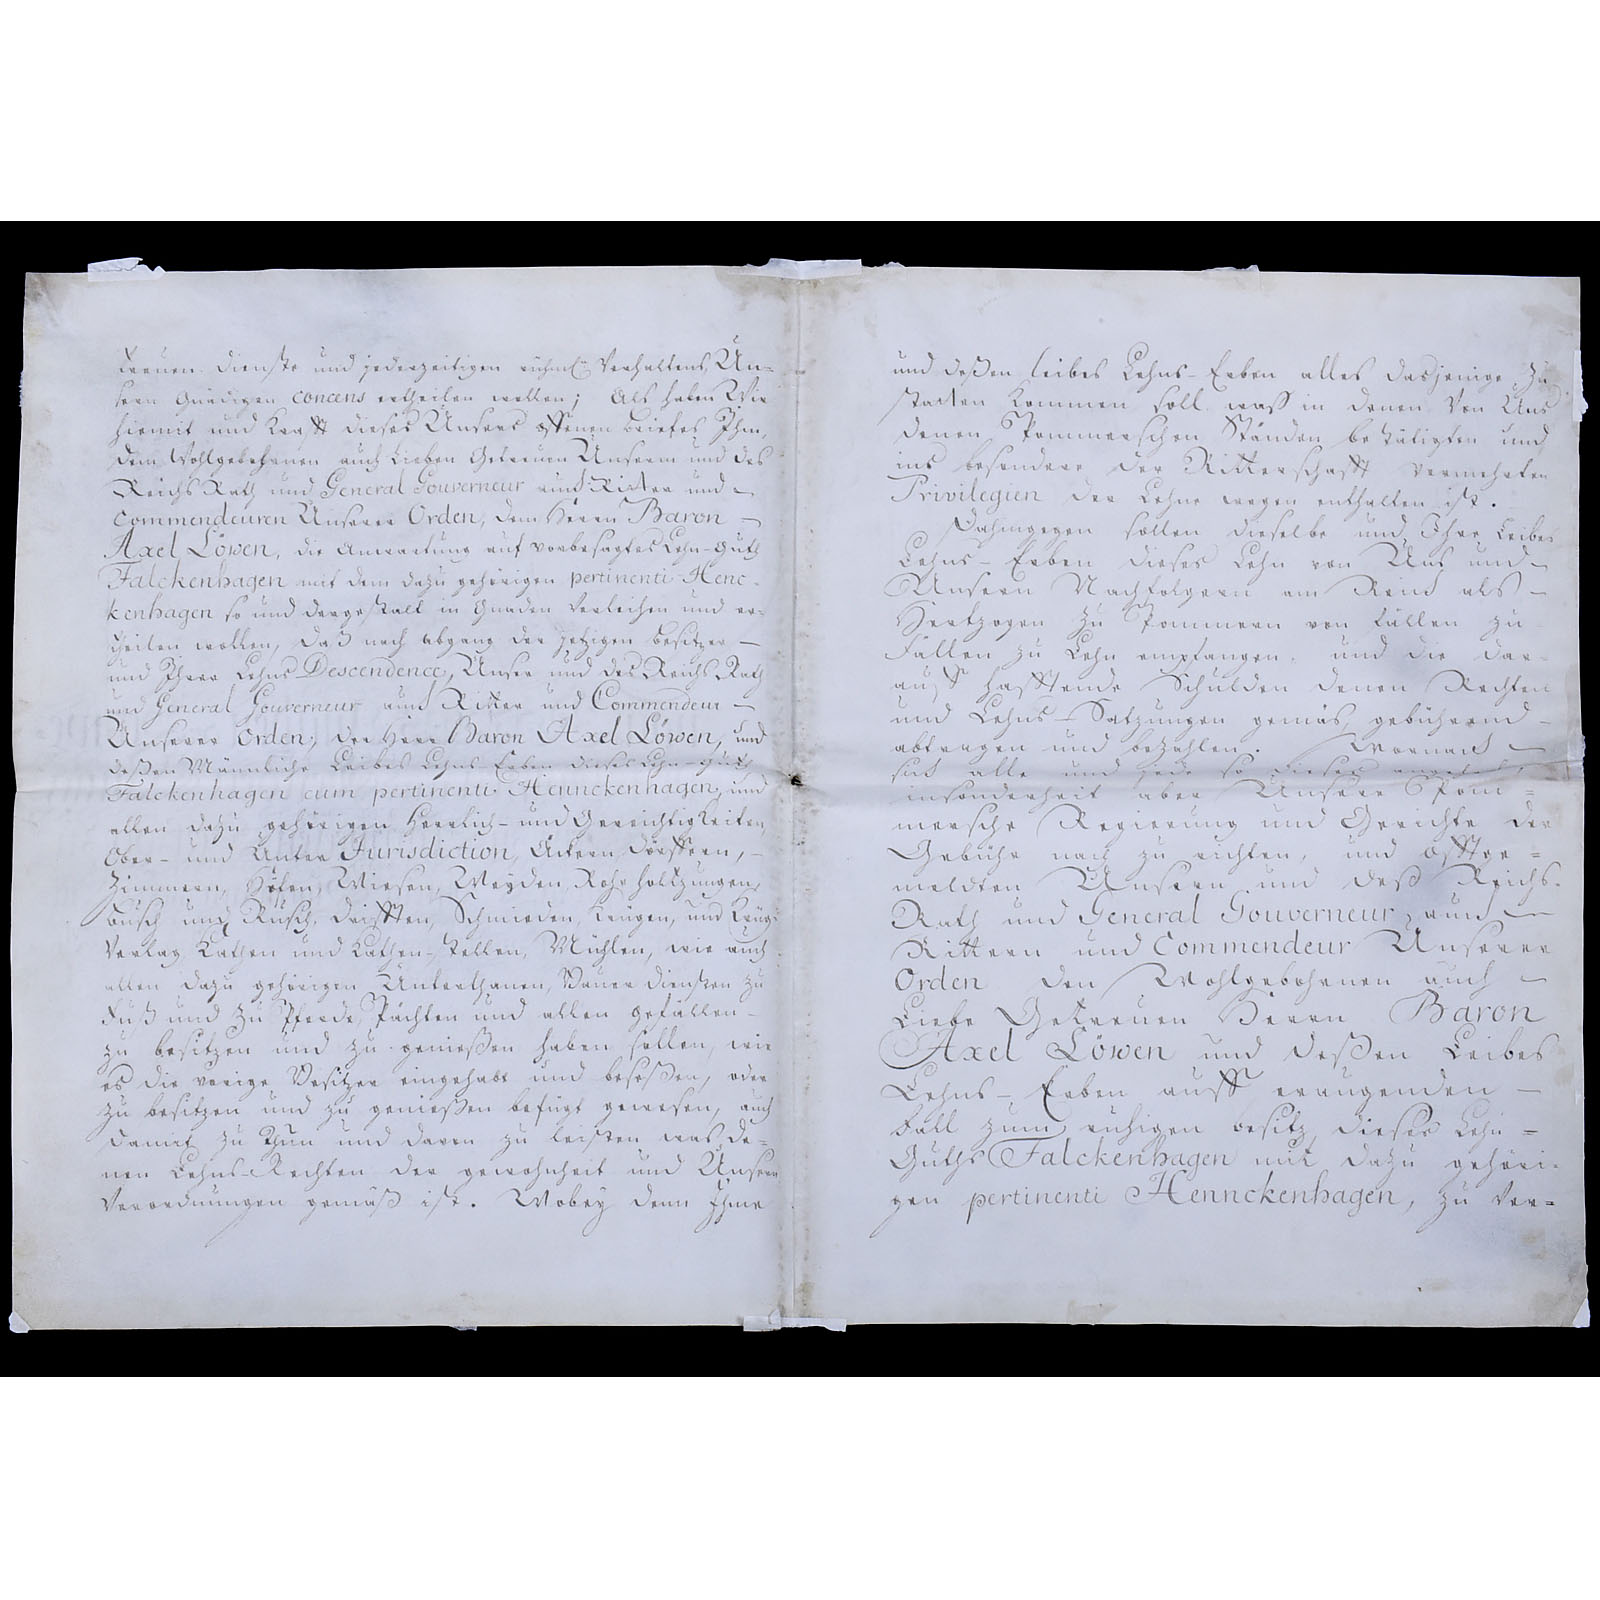 treuen Dienste und jederzeitigen rühml: Verhaltens Un=
sern Gnädigen concens ertheilen wollen; Als haben Wir
hiemit und Krafft dieses Unsers offenen Briefes Ihm,
dem Wohlgebohrnen auch Lieben Getreuen Unserm und des
Reichs Rath und General Gouverneur auch Ritter und –
Commendeuren Unserer Orden, dem Herrn Baron –
Axel Löwen, die Anwartung auf vorbesagtes Lehn-Guth
Falckenhagen mit dem dazu gehörigen pertinenti Henc-
kenhagen so und dergestalt in Gnaden Verleihen und er=
theilen wollen, daß nach Abgang der jetzigen Besitzer –
und Ihrer Lehns Descendence, Unser und des Reichs Rath
und General Gouverneur auch Ritter und Commendeur –
Unserer Orden, der Herr Baron Axel Löwen, und
deßen Männliche Leibes Lehns-Erben dieses Lehn-Guth
Falckenhagen cum pertinenti Henckenhagen, und
allen dazu gehörigen Herrlich- und Gerechtigkeiten,
Ober- und Unter Jurisdiction, Äckern, Dörffern, –
Zimmern, Höfen, Wiesen, Weyden, Rohr, Holtzungen,
Busch und Rusch, Drifften, Schmieden, Krügen, und Krug-
Verlag, Kathen und Kathen-stellen, Mühlen, wie auch
allen dazu gehörigen Unterthanen, Bauer Diensten zu
Fuß und zu Pferde, Pächten und allen gefällen –
zu besitzen und zu genießen haben sollen, wie
es die vorige Besitzer eingehabt und beseßen, oder
zu besitzen und zu genießen befugt gewesen, auch
damit zu thun und davon zu leisten was de=
nen Lehns-Rechten der gewohnheit und Unsern
Verordnungen gemäß ist. Wobey denn Ihme
und deßen Leibes Lehns-Erben alles dasjenige zu
statten kommen soll was in denen Von Uns
denen Pommerschen Ständen bestätigten und
ins besondere der Ritterschafft vermehrten
Privilegien der Lehne wegen enthalten ist.
Dahingegen sollen dieselbe und Ihre Leibes
Lehns-Erben dieses Lehn von Uns und –
Unsern Nachfolgern am Reich als –
Hertzogen zu Pommern von fällen zu
Fällen zu Lehn empfangen, und die dar-
auff hafftende Schulden denen Rechten
und Lehns-Satzungen gemäs, gebührend –
abtragen und bezahlen. Wornach –
sich alle und jede so dieses angehet,
insonderheit aber Unsere Pom=
mersche Regierung und Gerichte der
Gebühr nach zu richten, und offtge=
meldten Unsern und deß Reichs-
Rath und General Gouverneur, auch –
Rittern und Commendeur Unserer
Orden den Wohlgebohrnen auch –
Liebe Getreuen Herrn Baron
Axel Löwen und deßen Leibes
Lehns-Erben auff eräugenden –
Fall zum ruhigen besitz dieses Lehn=
Guths Falckenhagen mit dazu gehöri-
gen pertinenti Hennckenhagen, zu Ver=